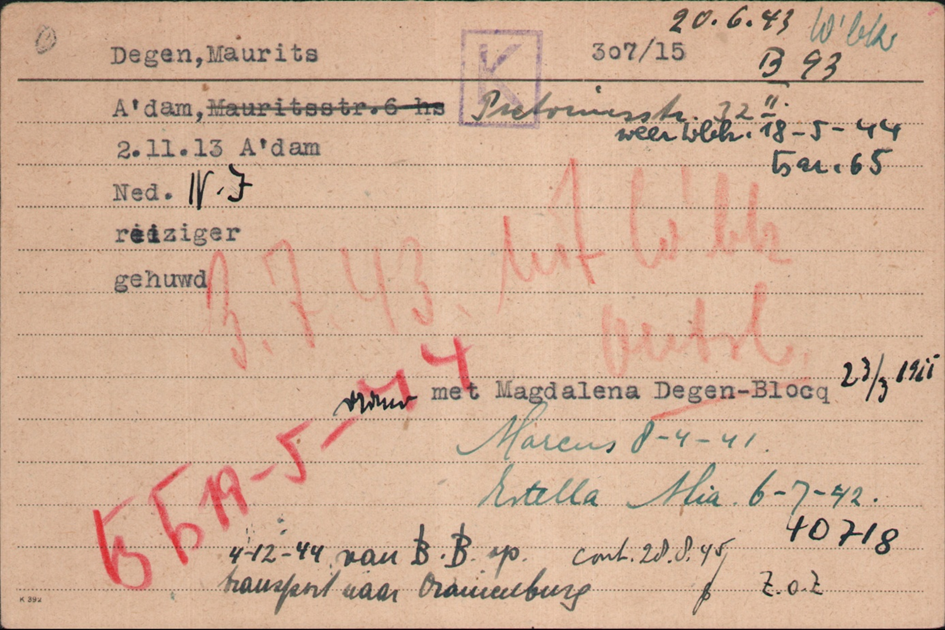 20.6.43 W'bk
Degen,Maurits K 307/15 B 93
A'dam, Mauritsstr.6 hs Pretoriusstr. 72 II.
weer Wbk. 18-5-44
2.11.13 A'dam Bar. 65
Ned. N.J
reiziger
gehuwd
3.7.43. uit W'bk
ontsl.
met Magdalena Degen-Blocq 23/3 1911
Marcus 8-4-41
BB 19-5-44
Estella Mia. 6-7-42.
40718
4-12-44 van B.B op cont. 28.8.45
transport naar Oranienburg Z.O.Z
K 392